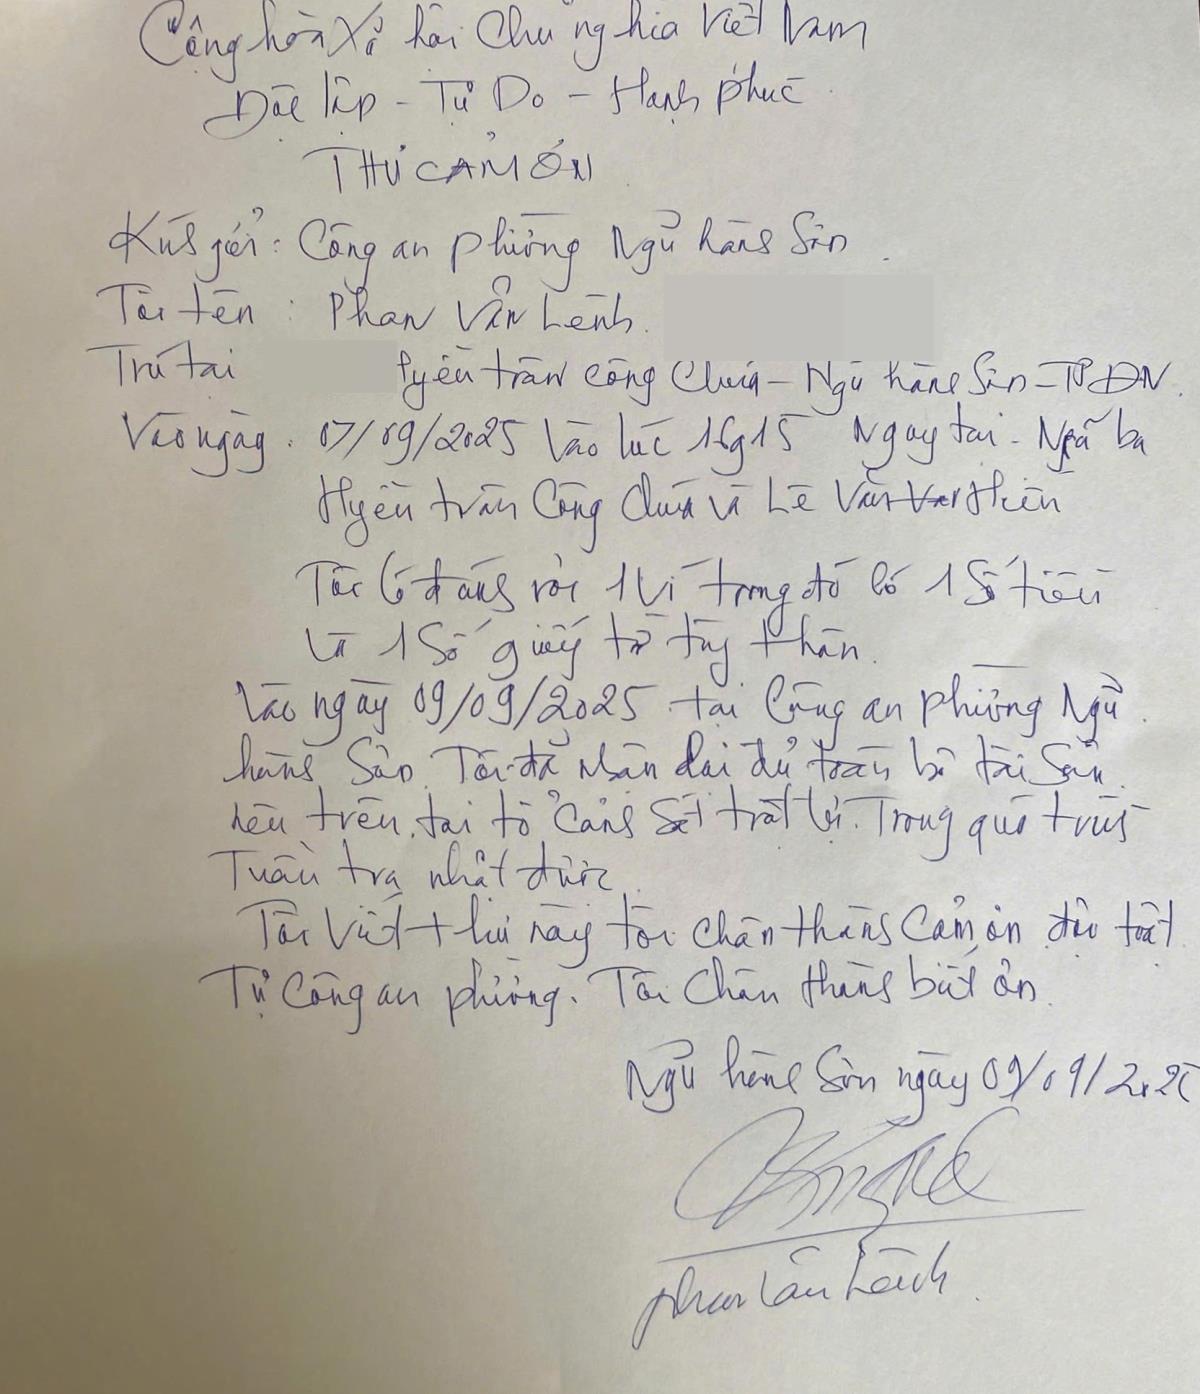 Cộng hòa Xã hội Chủ nghĩa Việt Nam
Độc lập - Tự Do - Hạnh phúc
THƯ CẢM ƠN
Kính gởi : Công an phường Ngũ hành Sơn
Tôi tên : Phan Văn Lành.
Trú tại yền trân công Chúa - Ngũ hành Sơn - TPĐN.
Vào ngày . 07/09/2025 Vào lúc 16g15 Ngay tại - Ngã ba
Hyền trân Công Chúa và Lê Văn Hiến
Tôi có đánh rơi 1 Ví trong đó có 1 Số tiền
Và 1 Số giấy tờ tùy thân.
Vào ngày 09/09/2025 tại Công an phường Ngũ
hành Sơn. Tôi đã nhận lại đủ toàn bộ tài Sản
nêu trên, tại tổ Cảnh Sát trật tự. Trong quá trình
Tuần tra nhặt được.
Tôi Viết thư này tôi chân thành Cảm ơn đội trật
Tự Công an phường. Tôi Chân thành biết ơn.
Ngũ hành Sơn ngày 09/09/2025
Phan Văn Lành